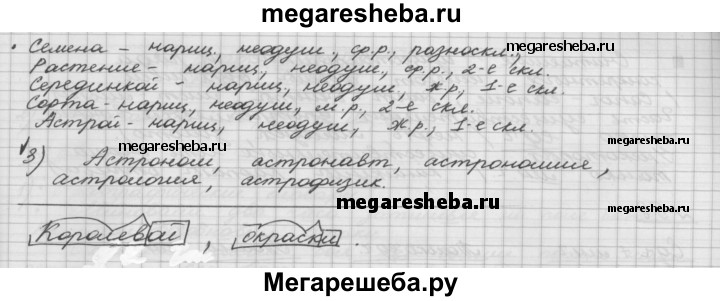 megaresheba.ru
Семена – нариц., неодуш., ср.р., разноскл.,
Растение – нариц., неодуш., ср.р., 2-е скл.
Серединкой – нариц., неодуш., ж.р., 1-е скл.
Сорта – нариц, неодуш, м.р., 2-е скл.
Астрой – нариц, неодуш, ж.р., 1-е скл.
megaresheba.ru
megaresheba.ru
3) Астроном, астронавт, астрономия,
астрология, астрофизик.
megaresheba.ru
Королевой, окраски.
Мегарешеба.ру